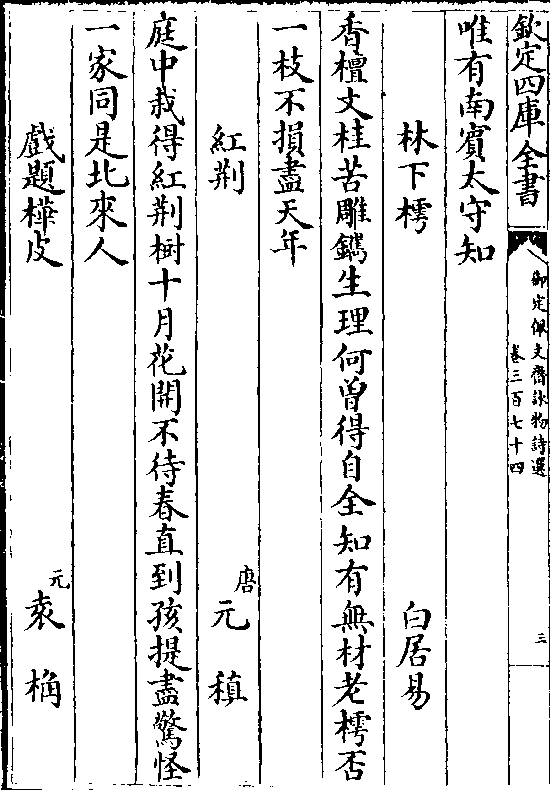 欽定四庫全書
御定佩文齋詠物詩選
卷三百七十四
三
唯有南賓太守知
林下樗 白居易
香檀文桂苦雕鐫生理何曽得自全知有無材老樗否
一枝不損盡天年
紅荆 唐元稹
庭中栽得紅荆樹十月花開不待春直到孩提盡驚怪
一家同是北來人
戲題樺皮 元袁桷